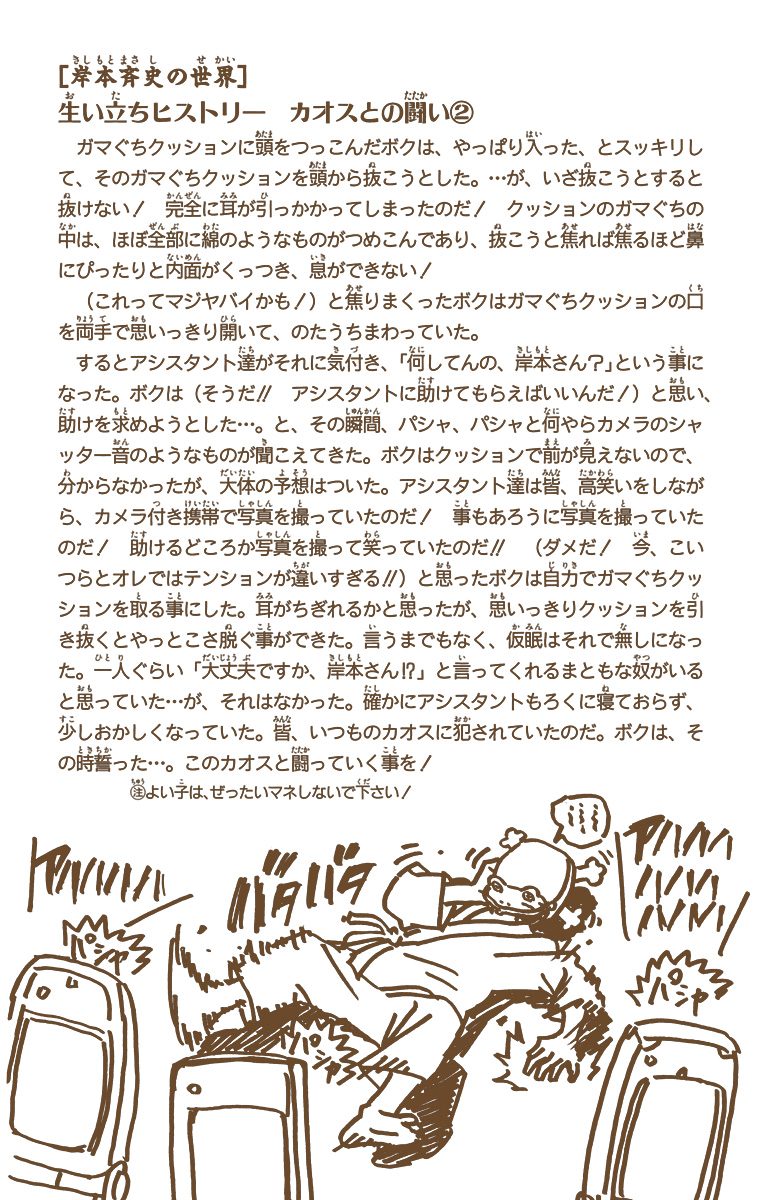 [岸本斉史の世界]
生い立ちヒストリー　カオスとの闘い②
　ガマぐちクッションに頭をつっこんだボクは、やっぱり入った、とスッキリし
て、そのガマぐちクッションを頭から抜こうとした。…が、いざ抜こうとすると
抜けない！　完全に耳が引っかかってしまったのだ！　クッションのガマぐちの
中は、ほぼ全部に綿のようなものがつめこんであり、抜こうと焦れば焦るほど鼻
にぴったりと内面がくっつき、息ができない！
　（これってマジヤバイかも！）と焦りまくったボクはガマぐちクッションの口
を両手で思いっきり開いて、のたうちまわっていた。
　するとアシスタント達がそれに気付き、「何してんの、岸本さん？」という事に
なった。ボクは（そうだ!!　アシスタントに助けてもらえばいいんだ！）と思い、
助けを求めようとした…。と、その瞬間、パシャ、パシャと何やらカメラのシャ
ッター音のようなものが聞こえてきた。ボクはクッションで前が見えないので、
分からなかったが、大体の予想はついた。アシスタント達は皆、高笑いをしなが
ら、カメラ付き携帯で写真を撮っていたのだ！　事もあろうに写真を撮っていた
のだ！　助けるどころか写真を撮って笑っていたのだ!!　（ダメだ！　今、こい
つらとオレではテンションが違いすぎる!!）と思ったボクは自力でガマぐちクッ
ションを取る事にした。耳がちぎれるかと思ったが、思いっきりクッションを引
き抜くとやっとこさ脱ぐ事ができた。言うまでもなく、仮眠はそれで無しになっ
た。一人ぐらい「大丈夫ですか、岸本さん!?」と言ってくれるまともな奴がいる
と思っていた…が、それはなかった。確かにアシスタントもろくに寝ておらず、
少しおかしくなっていた。皆、いつものカオスに犯されていたのだ。ボクは、そ
の時誓った…。このカオスと闘っていく事を！
㊟よい子は、ぜったいマネしないで下さい！
アハハハハ
バタバタ
アハハハ
ハハハ
ハハハハ
パシャ
パシャ
パシャ